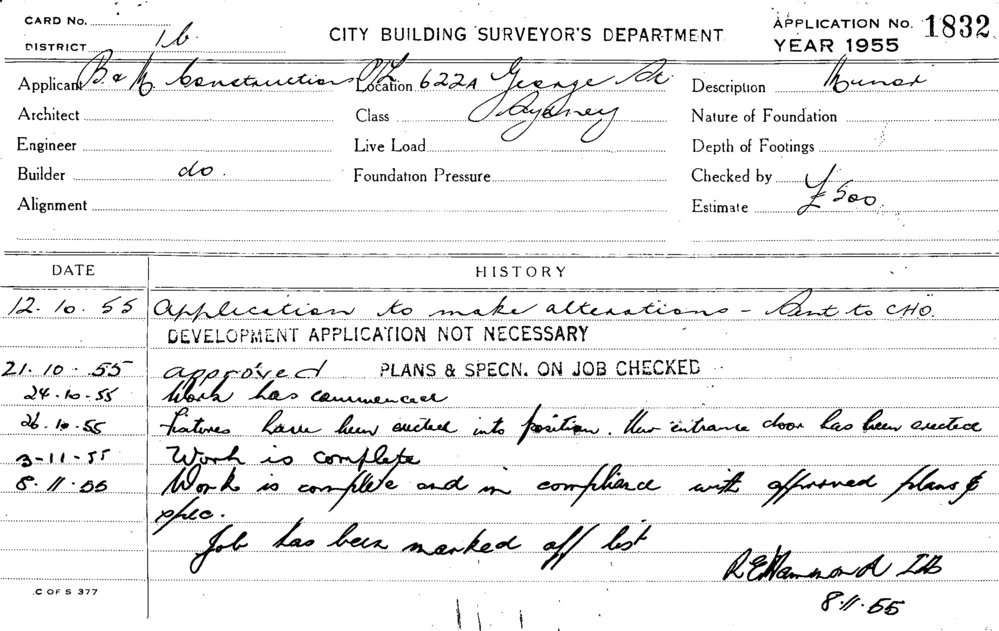 CARD No.
DISTRICT 1b.
CITY BUILDING SURVEYOR'S DEPARTMENT
APPLICATION No. 1832
YEAR 1955
Applicant B & M Constructions P/L Location 622A George St Description Minor
Architect Class Sydney Nature of Foundation
Engineer Live Load Depth of Footings
Builder do. Foundation Pressure Checked by
Alignment Estimate £500
DATE HISTORY
12.10.55 Application to make alterations – Sent to CHO.
DEVELOPMENT APPLICATION NOT NECESSARY
21.10.55 approved PLANS & SPECN. ON JOB CHECKED
24.10-55 Work has commenced
26.10-55 fixtures have been erected into position. New entrance door has been erected
3-11-55 Work is complete
8.11.55 Work is complete and in compliance with approved plans &
spec.
Job has been marked off list
R E Hammond
8.11.55
C OF S 377